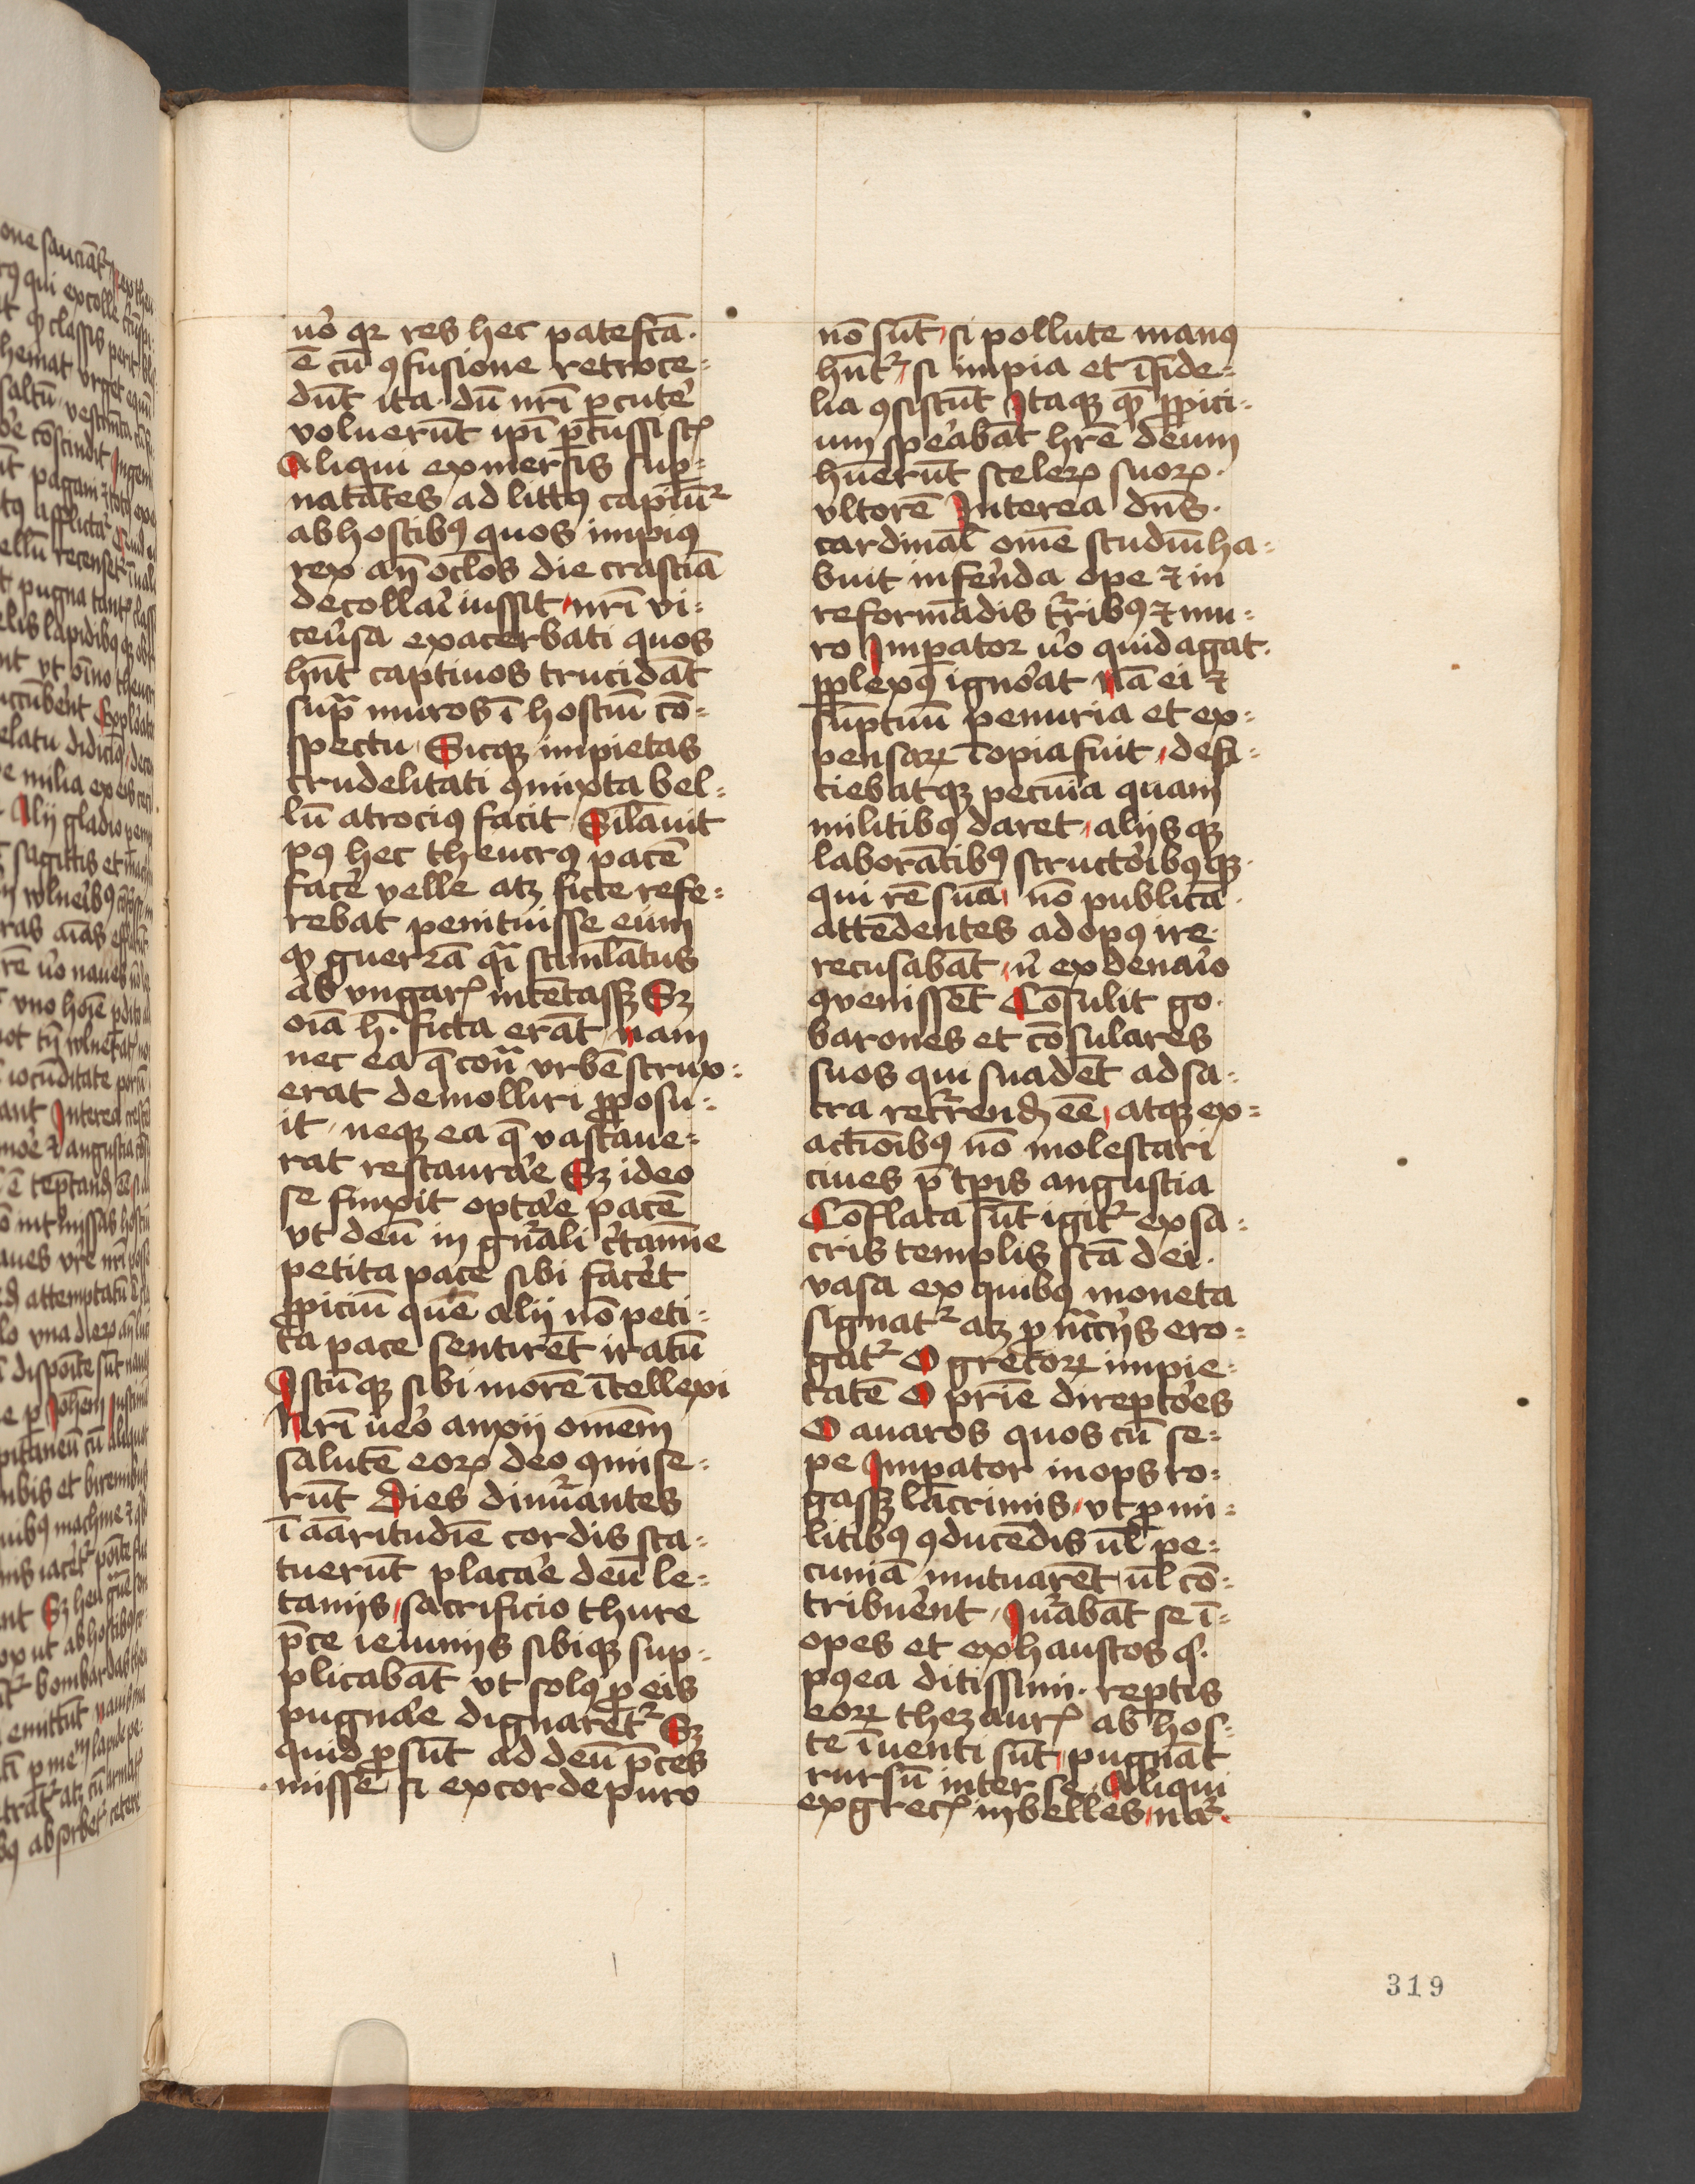 uo̾ qꝛ res hec patefcā·
ē cū ꝯfusione retroce=
dūt ita dū nr̄i ꝑcute̾
voluerūt ip̄i ꝑcussi st̄
Aliqui exmersis sup=
natātes ad littꝰ capiūtᷣ
ab hostibꝰ quos impiꝰ
rex an̄ oclōs die crastīa
decollai̾ iussit nr̄i vi=
ceu̾sa exacerbati quos
hn̄t captiuos trucidāt
supͣ muros ī hostiū cō=
spectu Sicqꝫ impietas
crudelitati ꝯmixta bel=
lū atrociꝰ facit Silauit
pꝰ hec theucrꝰ pacē
face̾ velle atꝫ ficte refe=
rebat penituisse eum
ꝙ guerrā qͣi stimlatus
ab vngaꝝ intētassꝫ Sꝫ
oīa h̄· ficta erāt nam
nec ea q̄ conͣ vrbē strux=
erat demolliri ꝓposu=
it neqꝫ ea q̄ vastaue=
rat restaura̾e Sꝫ ideo
se finxit opta̾e pacē
vt deū in gn̄ali c̾tamīe
petita pace sibi face̾t
ꝓpiciū quē alij nō peti=
ta pace sentirēt iratū
Istūqꝫ sibi morē ītellexi
Nr̄i ueo̾ anxij omēm
salutē eoꝝ deo ꝯmise=
rūt Dies dinūantes
ī aāritudīe cordis sta=
tuerūt placa̾e deū le=
tanijs sacrificio thure
p̄ce ieiunijs sibiqꝫ sup=
plicabāt vt solꝰ ꝓ eis
pugna̾e dignaretᷣ Sꝫ
quid ꝓsūt ad deū p̄ces
misse si ex corde puro
nō sūt si pollute manꝰ
hn̄tᷣ si impia et īfide=
lia ꝯsistūt Itaqꝫ qꝫ ꝓpici=
um spe̾abāt hr̄e deum
hūerūt sceleꝝ suoꝝ·
vltorē Interea dn̄s·
cardinal̄ omē studiū ha=
buit infe̾nda ope ⁊ in
reformādis tr̄ribꝰ ⁊ mu=
ro Impator uo̾ quid agat·
ꝑplexꝰ igno̾at nā ei ⁊
sūptuū penuria et ex=
pensaꝝ īopia fuit defi=
ciebatqꝫ pecuīa quam
militibꝰ daret alijsqꝫ
laborātibꝰ structo̾ibꝰqꝫ·
qui rē suā nō publicā·
attēdentes ad opꝰ ire
recusabāt n̾ ex denai̾o
ꝯuenissēt Cōsulit go·
barones et cōsulares
suos qui suadēt ad sa=
cra recᷣrendꝫ eē atqꝫ ex=
actiōibꝰ nō molestari
ciues p̄ tp̄is angustia
Cōflata sūt igitᷣ ex sa=
cris templis scā dei·
vasa ex quibꝰ moneta
signatᷣ atꝫ ꝓ nccͣijs ero=
gatᷣ O grecoꝝ impie=
tatē O pr̄ie direpto̾es
O auaros quos cū se=
pe Impator inops ro=
gassꝫ lacrimis vt ꝓ mi=
litibꝰ ꝯducēdis ul̄ pe=
cuniā mutuarēt ul̄ cō=
tribue̾nt Iurabāt se ī=
opes et exhaustos qͥ·
pꝰea ditissimi· reptis
eoꝝ thezauꝝ ab hos=
te īuenti sūt pugnāt
rursū inter se Aliqui
ex greꝯ inbelles natᷣ
319